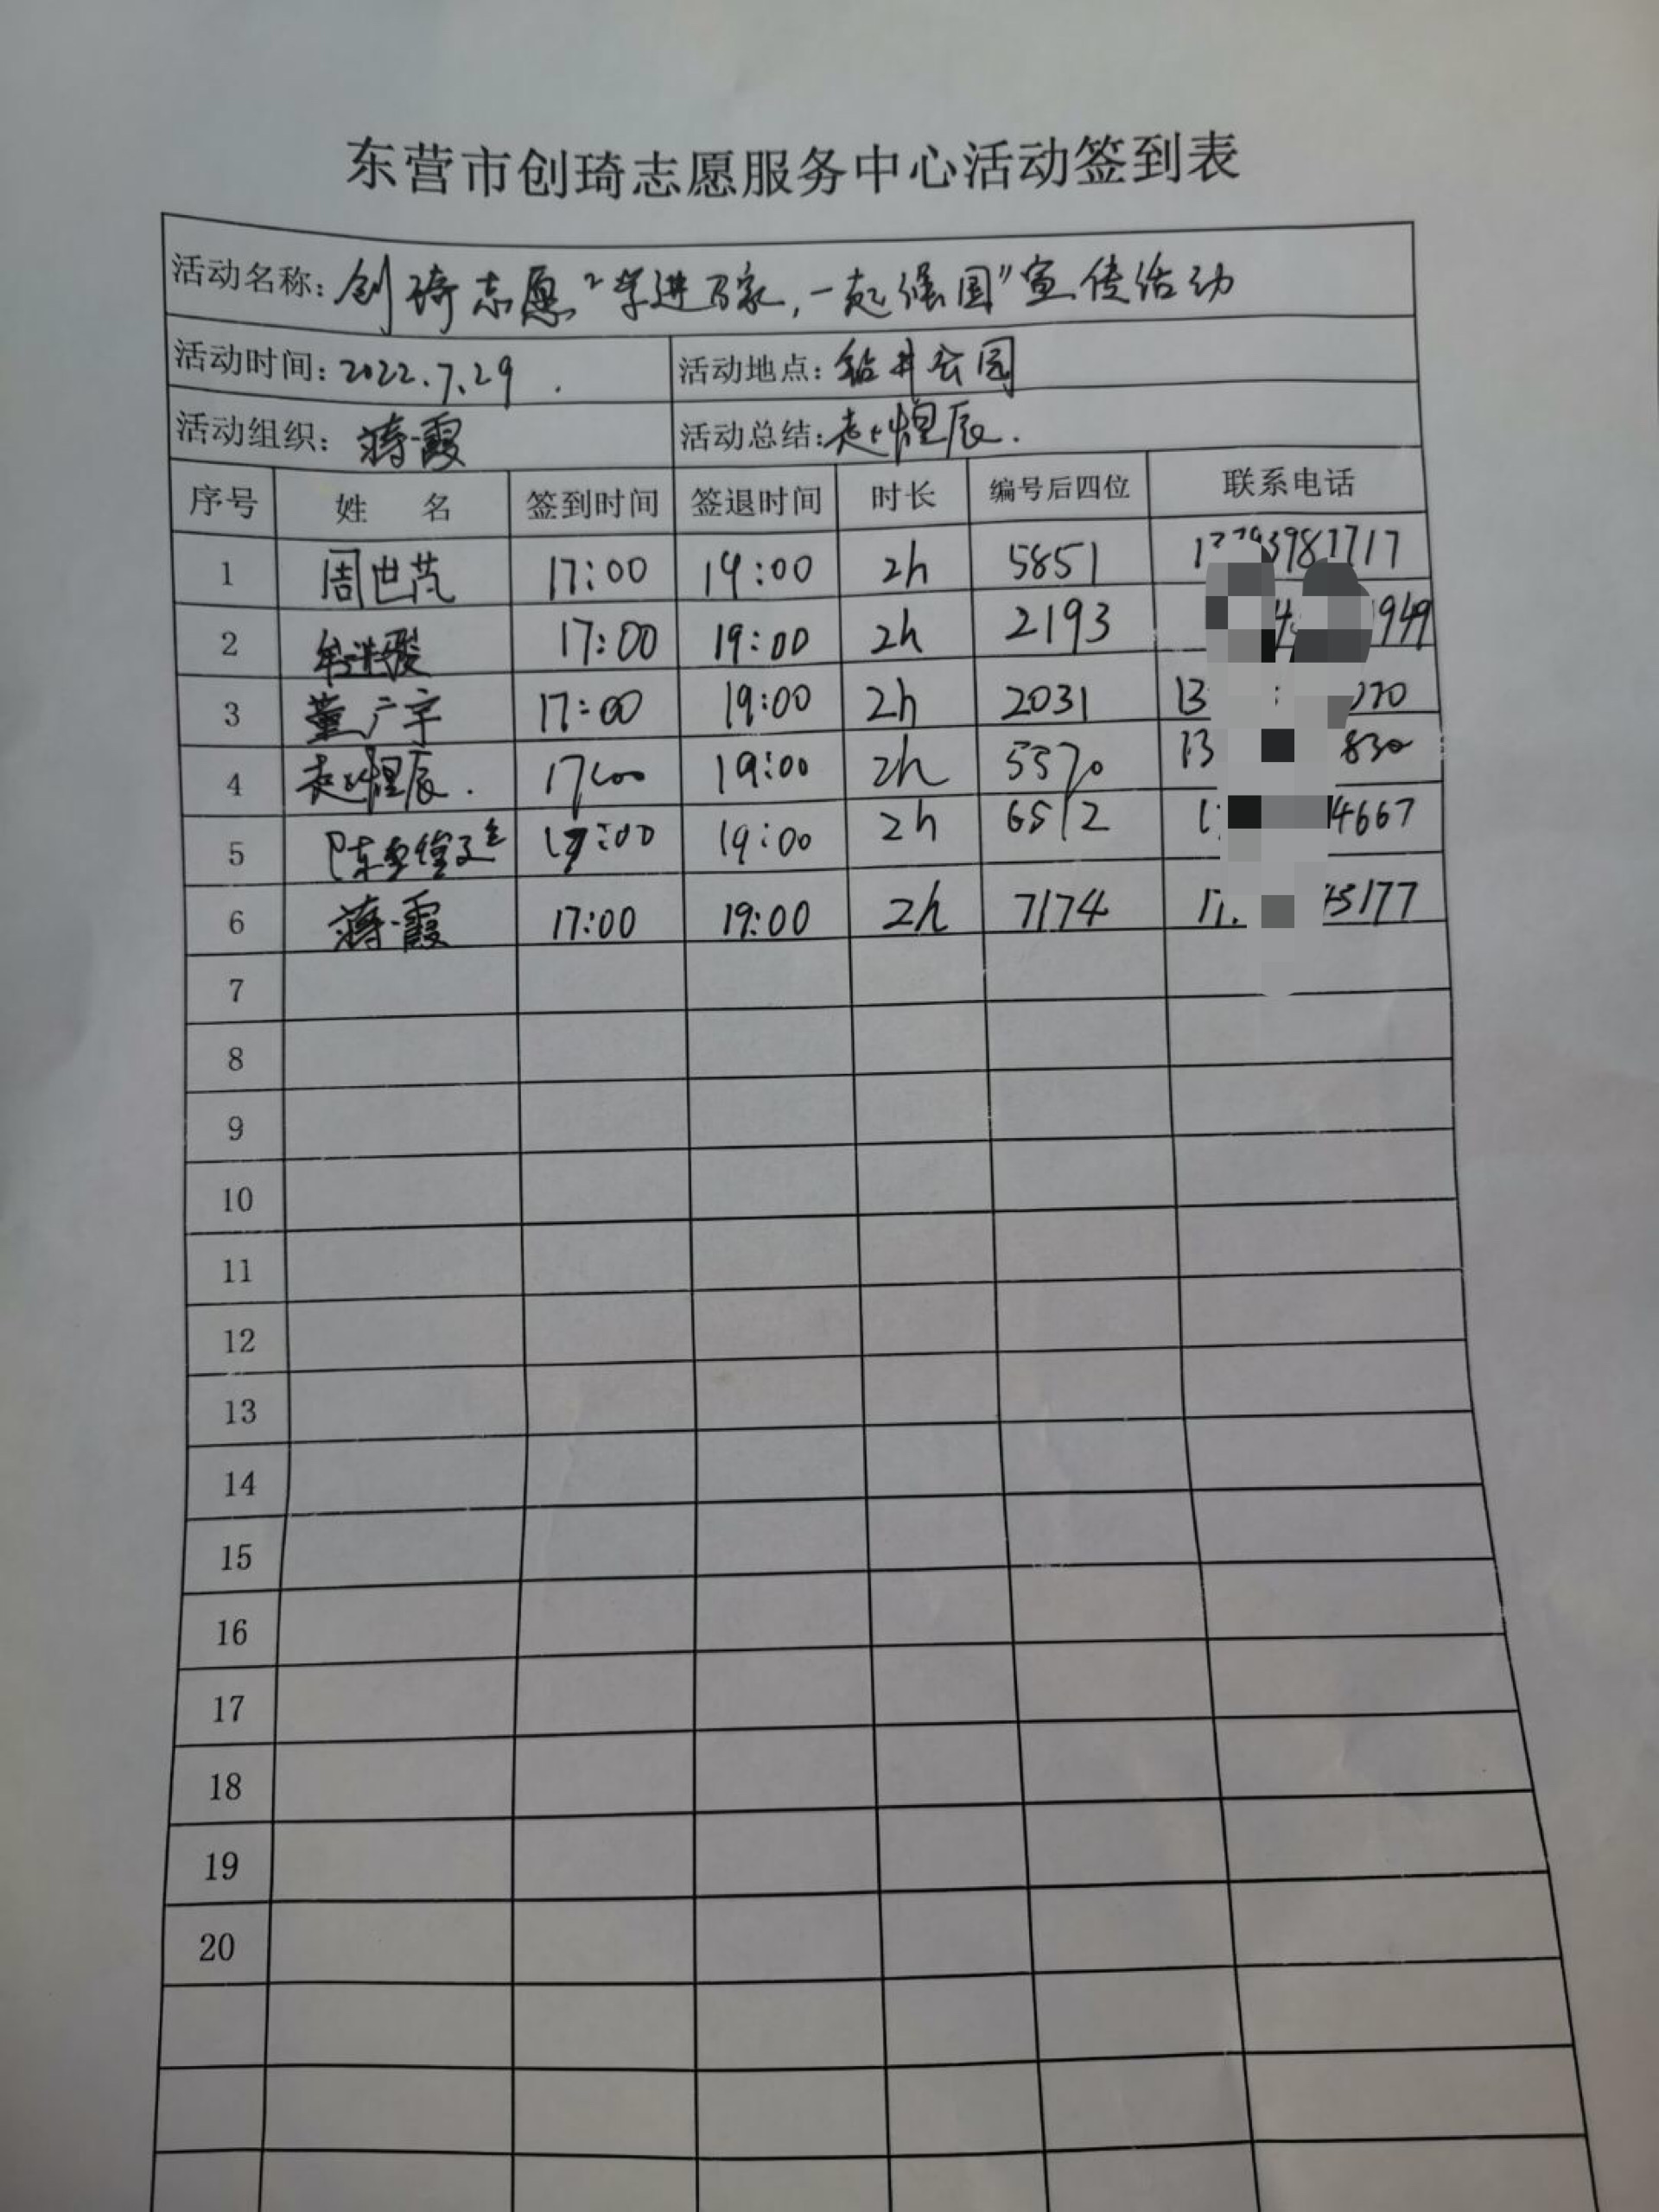 东营市创琦志愿服务中心活动签到表
活动名称: 创琦志愿“学进万家,一起强国”宣传活动
活动时间: 2022.7.29 . 活动地点: 钻井公园
活动组织: 蒋霞 活动总结: 赵煜辰.
序号 姓 名 签到时间 签退时间 时长 编号后四位 联系电话
1 周世芃 17:00 19:00 2h 5851
2 17:00 19:00 2h 2193
3 董广宇 17:00 19:00 2h 2031
4 赵煜辰. 17:00 19:00 2h 5570
5 17:00 19:00 2h 6512
6 蒋霞 17:00 19:00 2h 7174
7
8
9
10
11
12
13
14
15
16
17
18
19
20